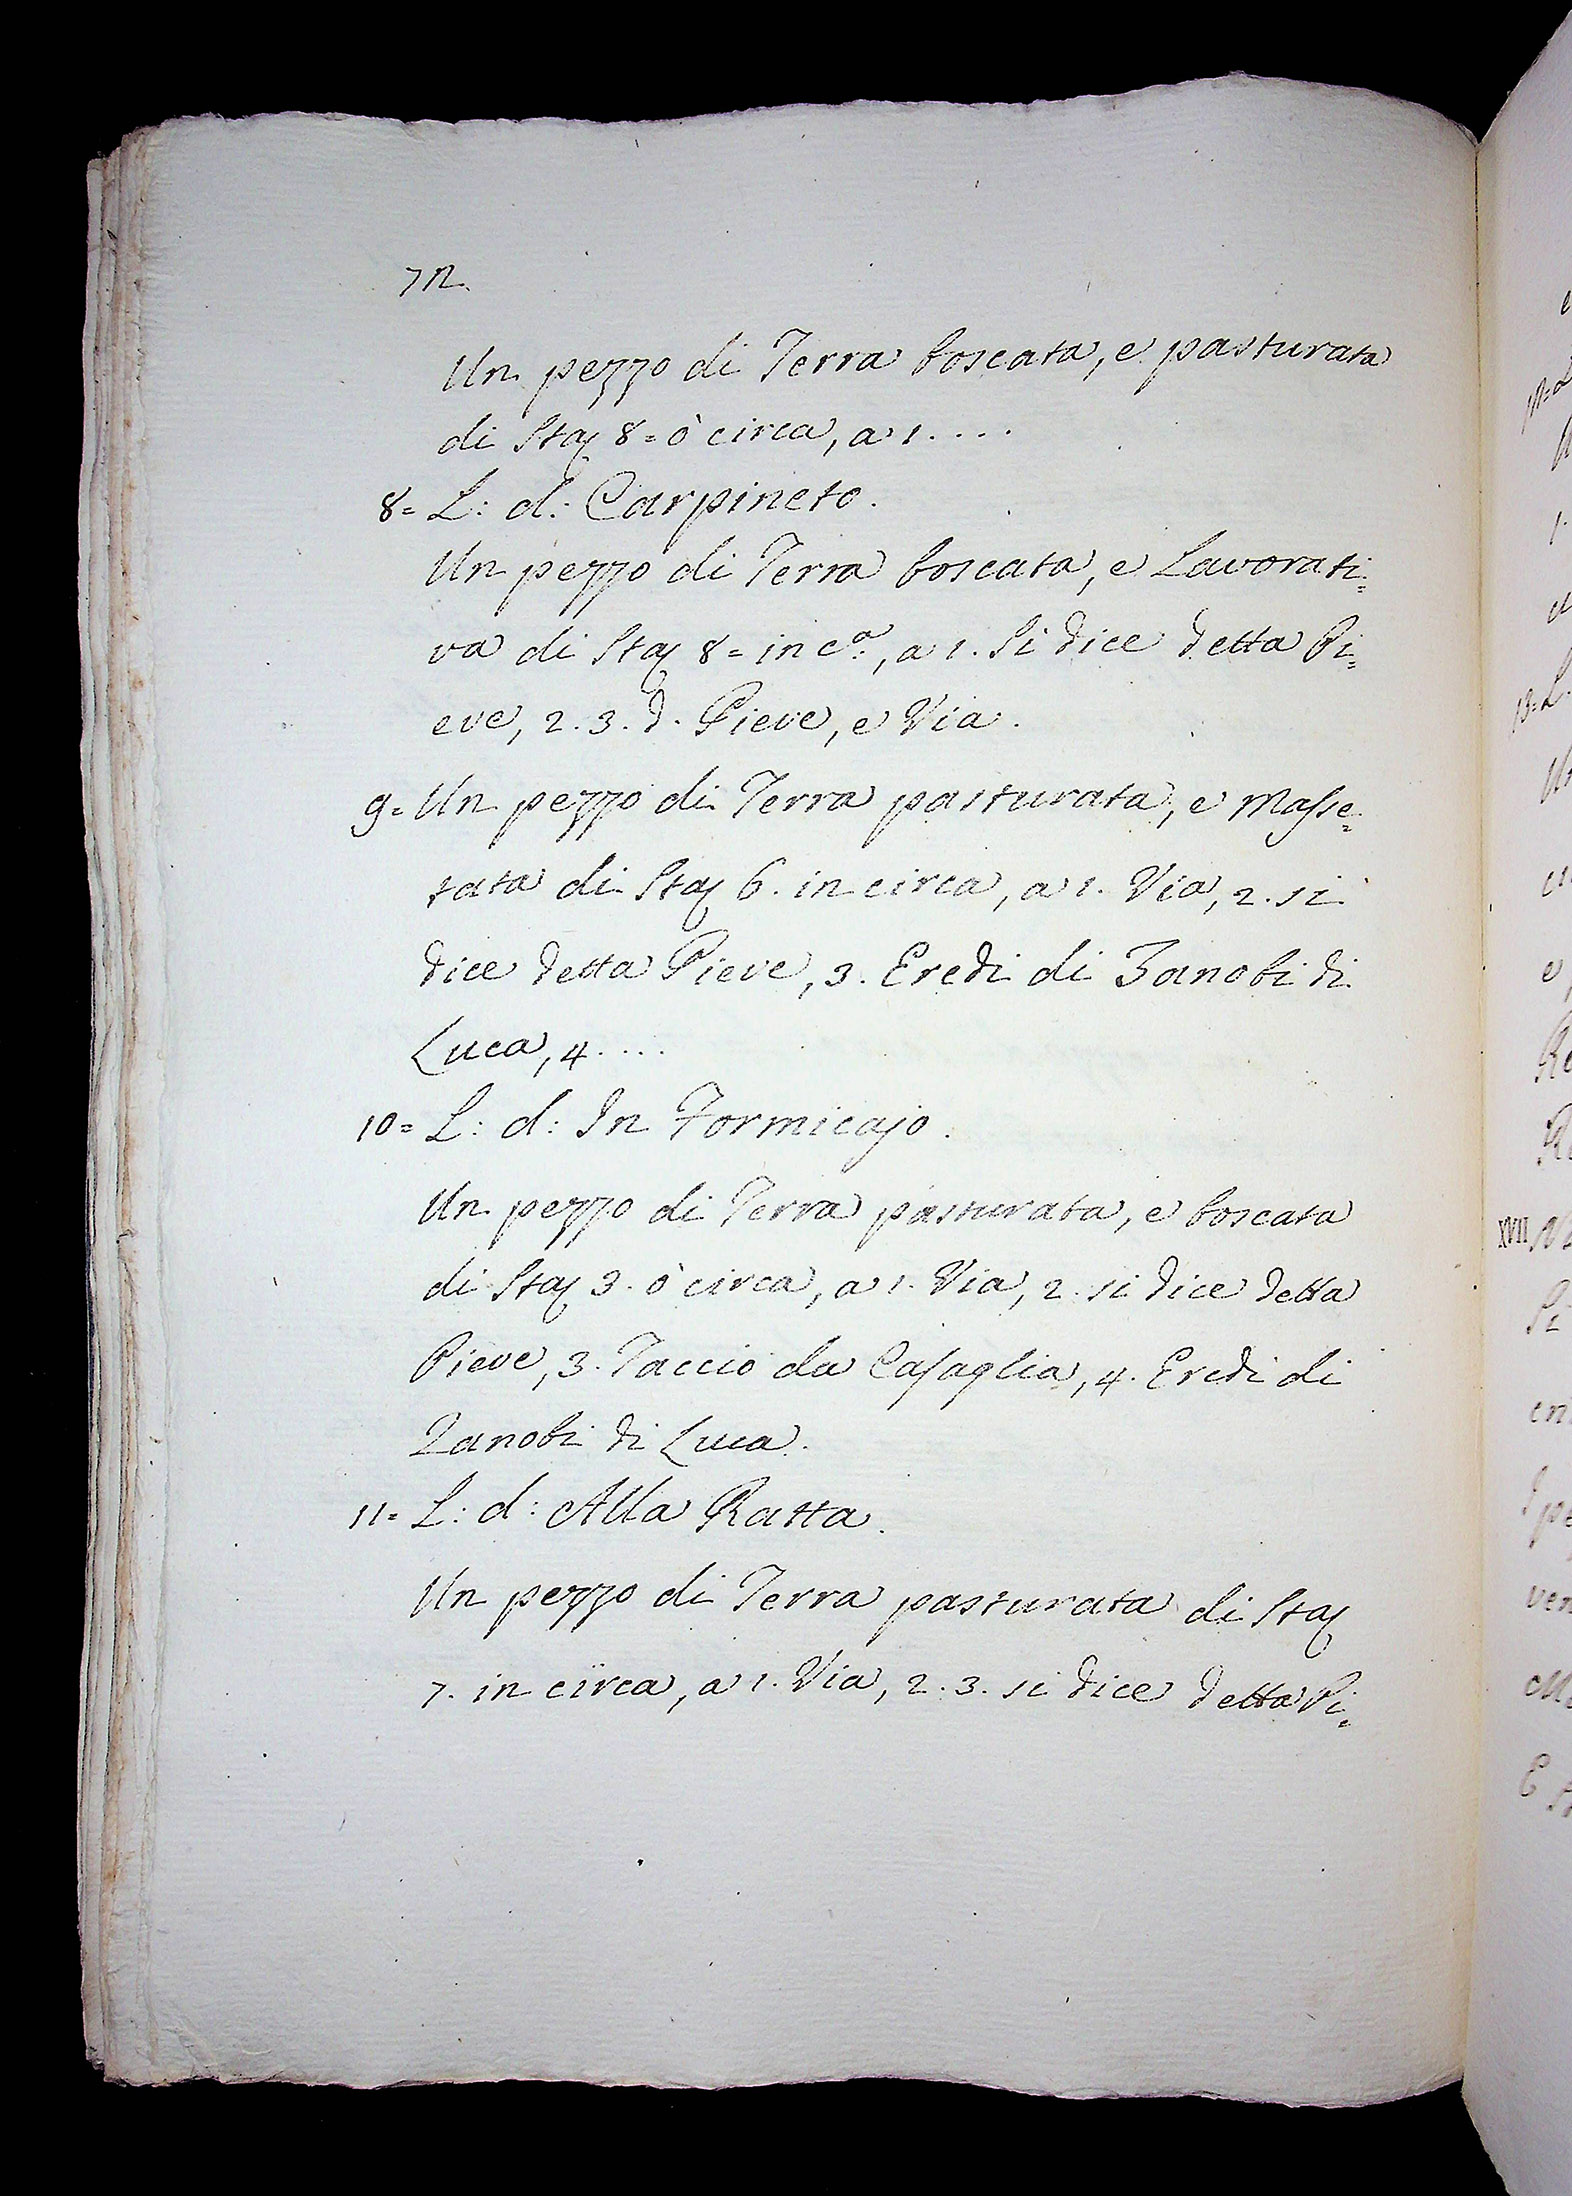 72.
Un pezzo di Terra boscata, e pasturata
di Staj 8= ò circa, a 1. . . .
8= L: d: Carpineto.
Un pezzo di Terra boscata, e Lavorati=
va di Staj 8= in c.a, a 1. Si dice detta Pi=
eve, 2. 3. d. Pieve, e Via.
9= Un pezzo di Terra pasturata, e Masse=
tata di Staj 6. in circa, a 1. Via, 2. si
dice detta Pieve, 3. Eredi di Zanobi di
Luca, 4. . . .
10= L: d: In Formicajo.
Un pezzo di Terra pasturata, e boscata
di Staj 3. ò circa, a 1. Via, 2. si dice detta
Pieve, 3. Taccio da Casaglia, 4. Eredi di
Zanobi di Luca.
11= L: d: Alla Ratta.
Un pezzo di Terra pasturata di Staj
7. in circa, a 1. Via, 2. 3. si dice detta Pi=
XVII